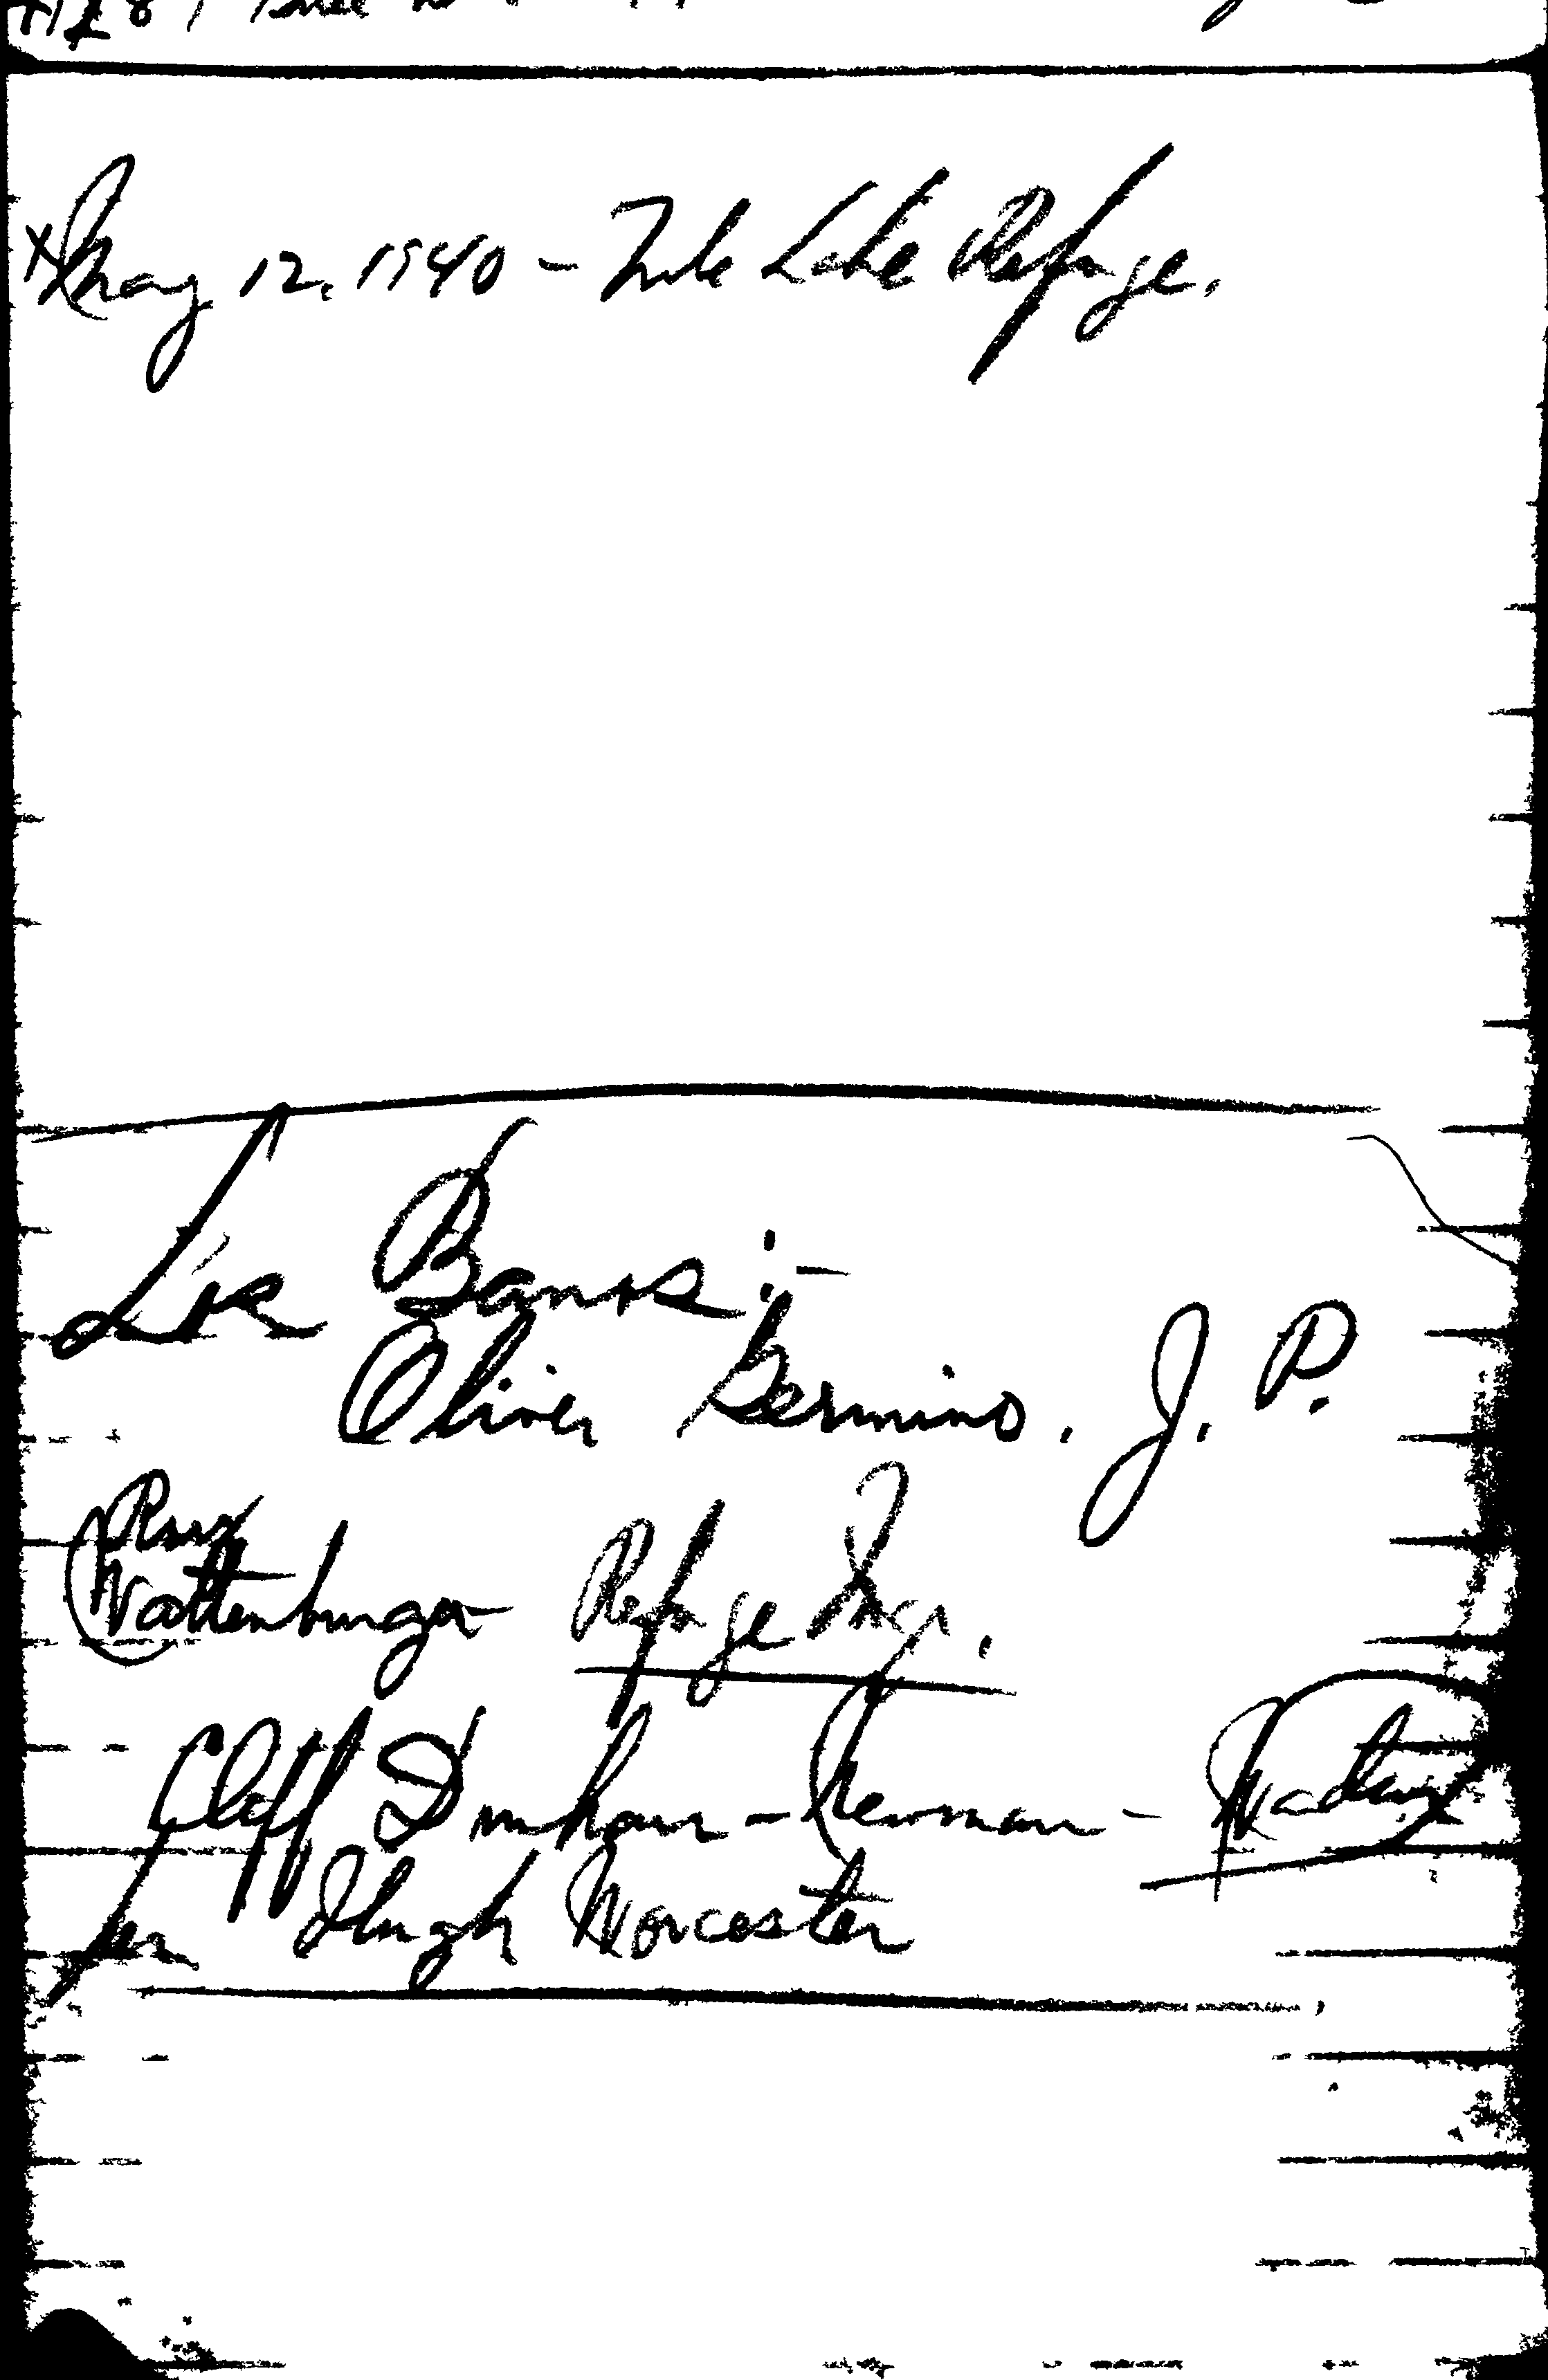 x May 12, 1940 - Tule Lake Refuge.
Los Banos:-
Oliver Germino. J. P.
Wattenburger Refuge Mgr.
Cliff Dunham - Newman -
for Hugh Worcester